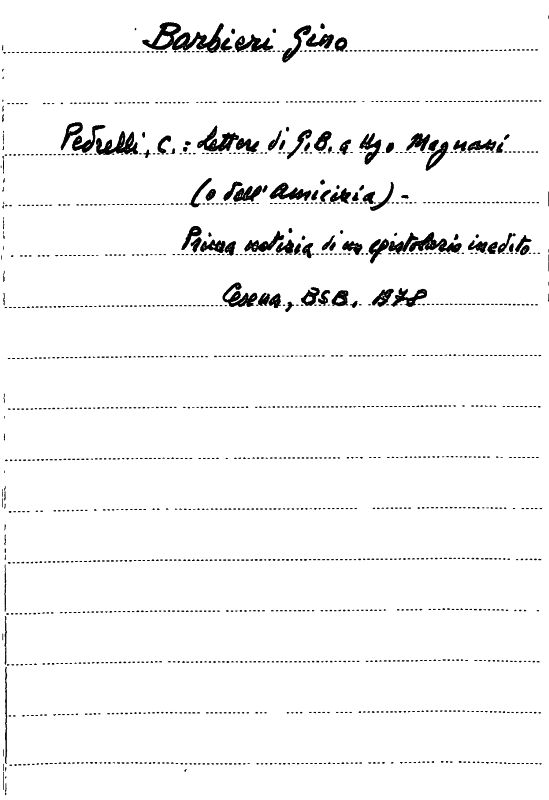 Barbieri Gino
Pedrelli, C.: Lettere di G.B. a Ugo Magnani
(o dell'amicizia) -
Prima notizia di un epistolario inedito
Cesena, BSB, 1978